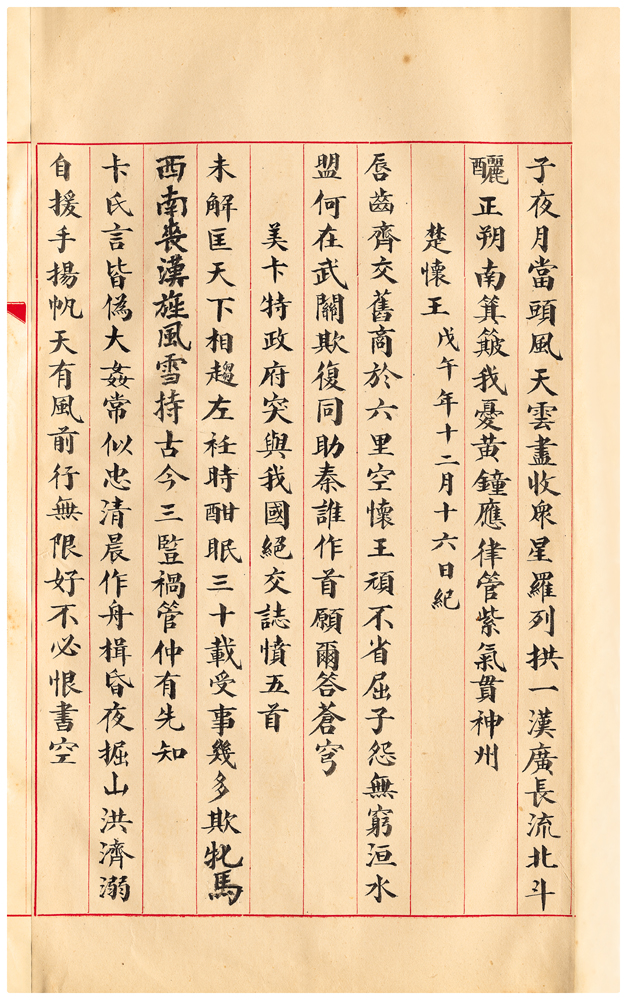 子夜月當頭風天雲盡收眾星羅列拱一漢廣長流北斗
釃正朔南箕簸我憂黃鐘應律管紫氣貫神州
楚懷王 戊午年十二月十六日紀
唇齒齊交舊商於六里空懷王頑不省屈子怨無窮洹水
盟何在武關欺復同助秦誰作首願爾答蒼穹
美卡特政府突與我國絕交誌憤五首
未解匡天下相趨左衽時酣眠三十載受事幾多欺牝馬
西南喪漢旌風雪持古今三豎禍管仲有先知
卡氏言皆偽大姦常似忠清晨作舟楫昏夜掘山洪濟溺
自援手揚帆天有風前行無限好不必恨書空